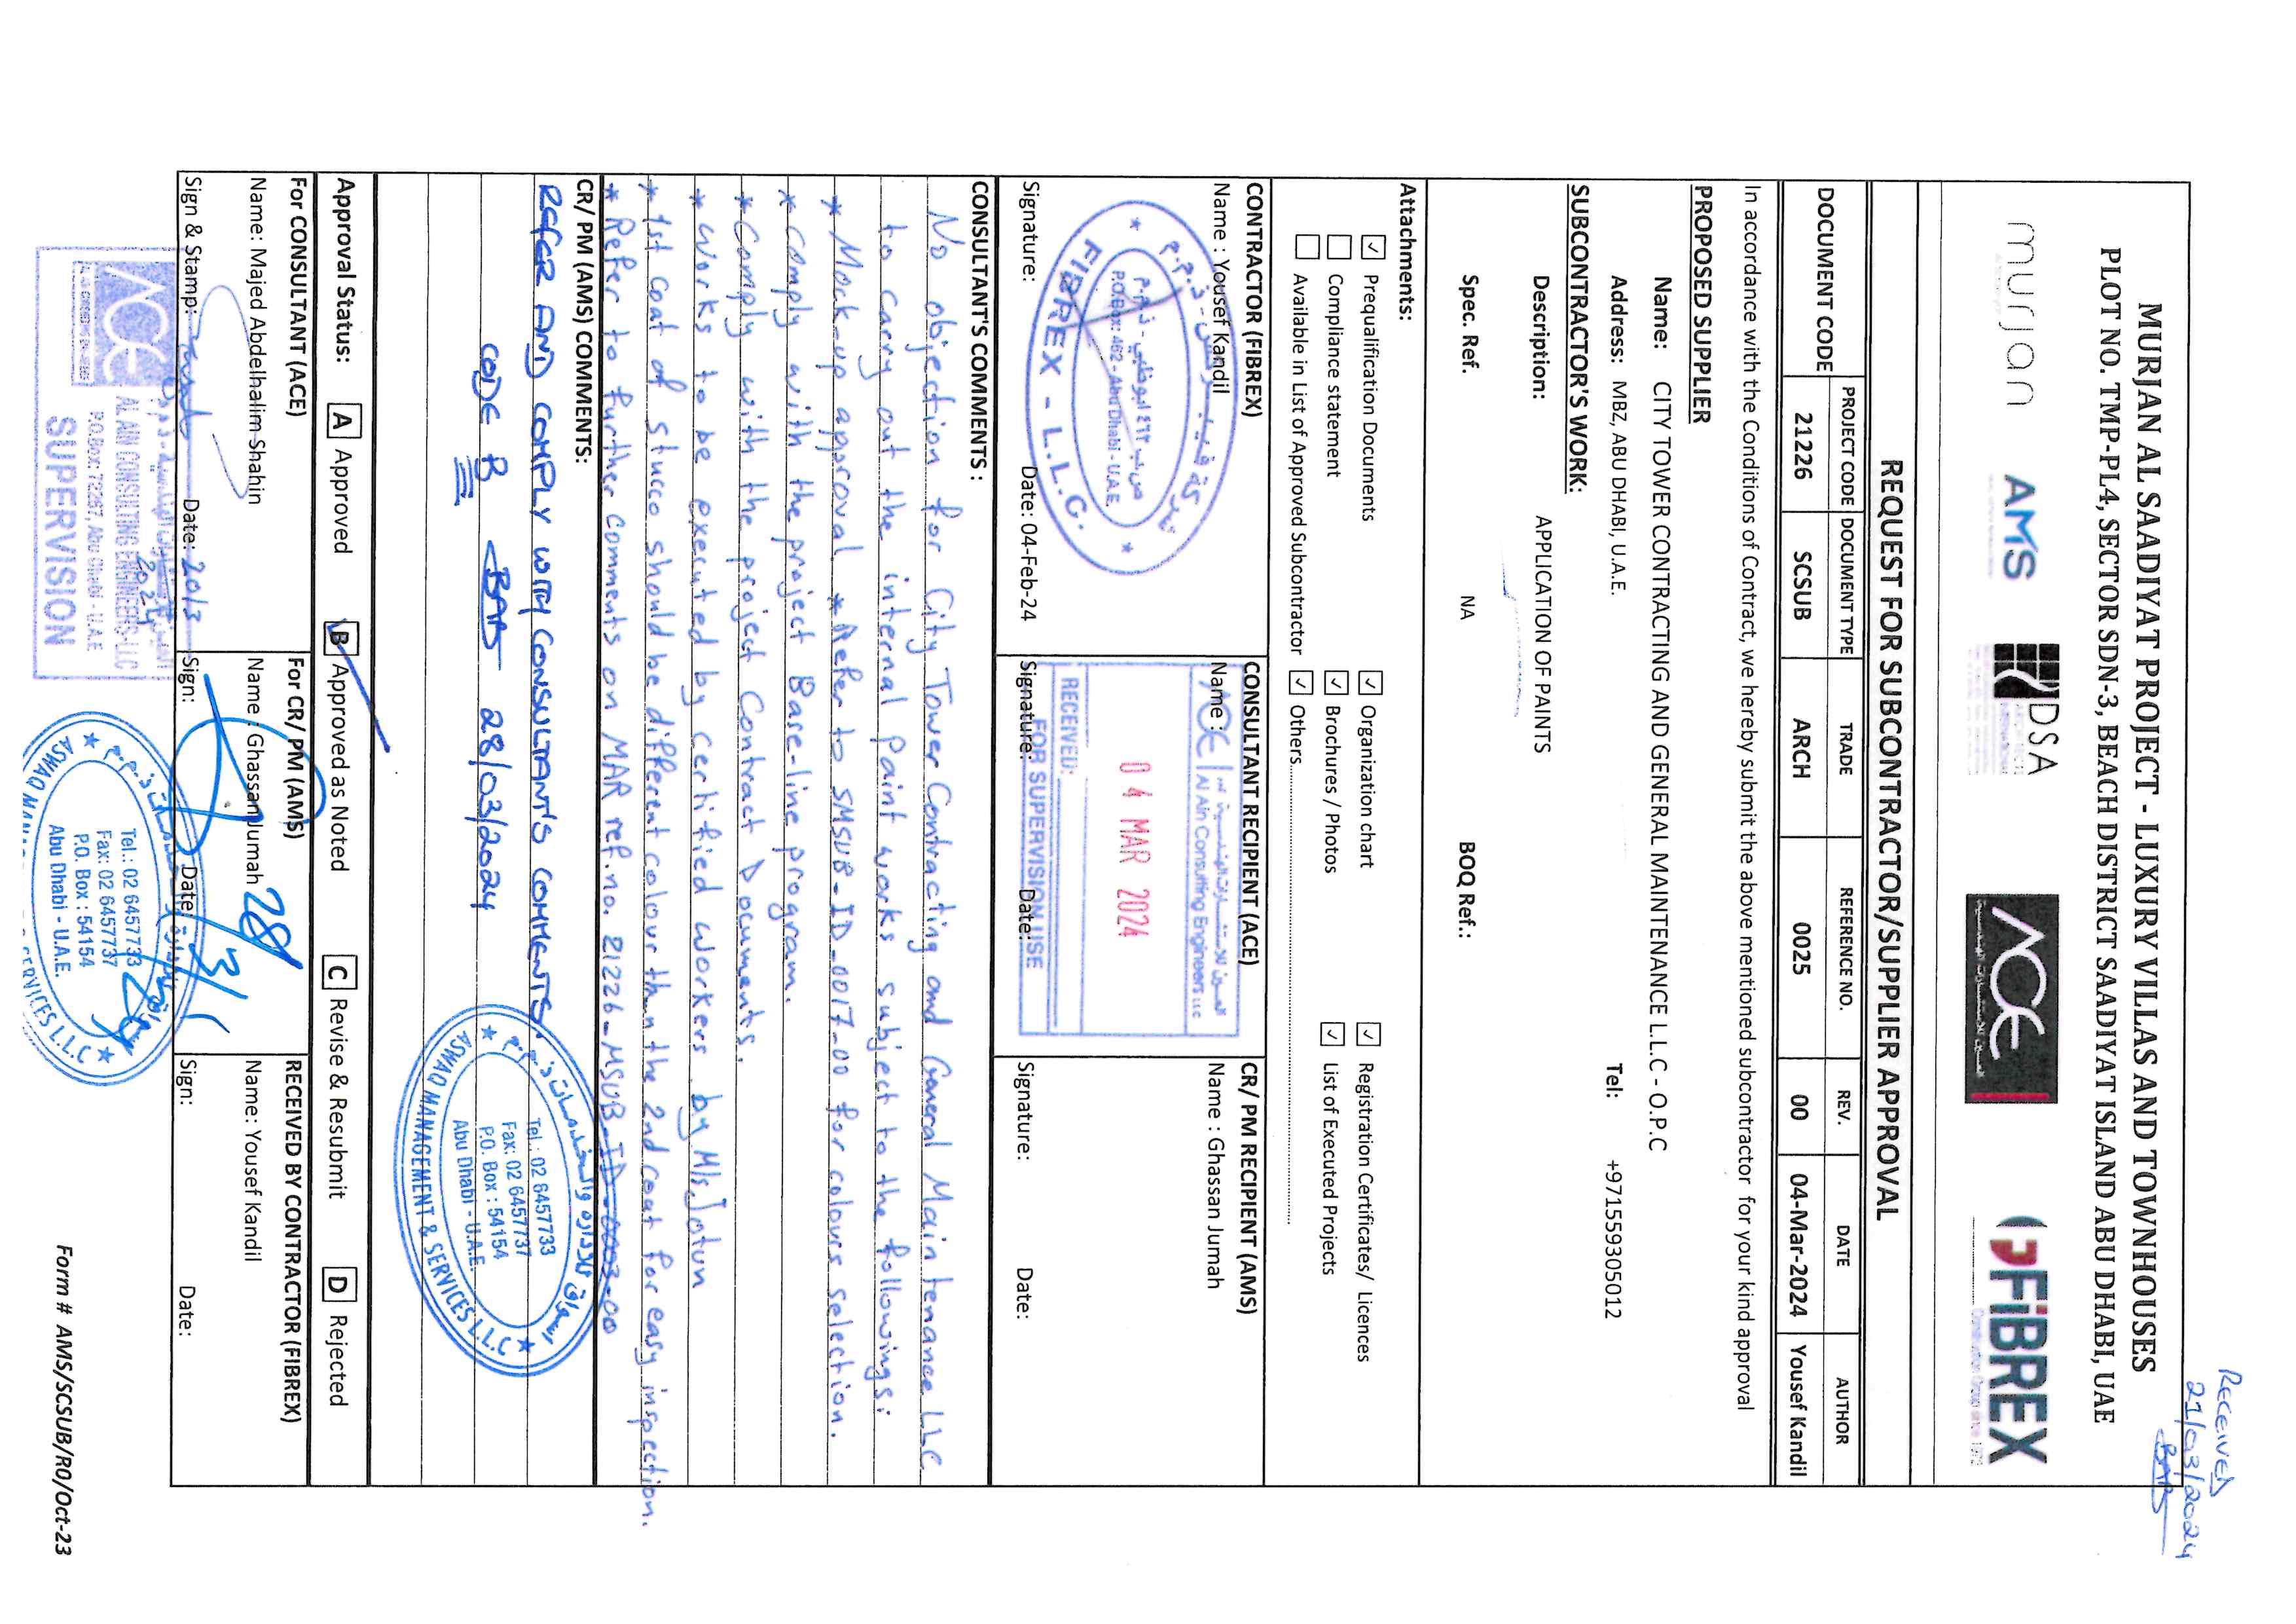 Received
21/03/2024
MURJAN AL SAADIYAT PROJECT - LUXURY VILLAS AND TOWNHOUSES
PLOT NO. TMP-PL4, SECTOR SDN-3, BEACH DISTRICT SAADIYAT ISLAND ABU DHABI, UAE
murjan AMS DSA ACE FIBREX
REQUEST FOR SUBCONTRACTOR/SUPPLIER APPROVAL
DOCUMENT CODE PROJECT CODE DOCUMENT TYPE TRADE REFERENCE NO. REV. DATE AUTHOR
21226 SCSUB ARCH 0025 00 04-Mar-2024 Yousef Kandil
In accordance with the Conditions of Contract, we hereby submit the above mentioned subcontractor for your kind approval
PROPOSED SUPPLIER
Name: CITY TOWER CONTRACTING AND GENERAL MAINTENANCE L.L.C - O.P.C
Address: MBZ, ABU DHABI, U.A.E. Tel: +971559305012
SUBCONTRACTOR'S WORK:
Description: APPLICATION OF PAINTS
Spec. Ref. NA BOQ Ref.:
Attachments:
☑ Prequalification Documents ☑ Organization chart ☑ Registration Certificates/ Licences
☐ Compliance statement ☑ Brochures / Photos ☑ List of Executed Projects
☐ Available in List of Approved Subcontractor ☑ Others........................
CONTRACTOR (FIBREX) CONSULTANT RECIPIENT (ACE) CR/ PM RECIPIENT (AMS)
Name : Yousef Kandil Name : Name : Ghassan Jumah
ACE Al Ain Consulting Engineers LLC
04 MAR 2024
RECEIVED:
FOR SUPERVISION USE
P.O.Box: 462 - Abu Dhabi - U.A.E.
FIBREX - L.L.C.
Signature: Date: 04-Feb-24 Signature: Date: Signature: Date:
CONSULTANT'S COMMENTS :
No objection for City Tower Contracting and General Maintenance LLC
to carry out the internal paint works subject to the followings:
* Mock-up approval * Refer to SMSUB-ID-0017-00 for colours selection.
* Comply with the project Base-line program.
* Comply with the project Contract Documents.
* Works to be executed by certified workers by M/s Jotun
* 1st coat of stucco should be different colour than the 2nd coat for easy inspection.
* Refer to further comments on MAR ref.no. 21226-MSUB-ID-0003-00
CR/ PM (AMS) COMMENTS:
REFER AND COMPLY WITH CONSULTANT'S COMMENTS.
CODE B 28/03/2024
Tel.: 02 6457733
Fax: 02 6457737
P.O. Box : 54154
Abu Dhabi - U.A.E.
ASWAQ MANAGEMENT & SERVICES L.L.C
Approval Status: A Approved B Approved as Noted C Revise & Resubmit D Rejected
For CONSULTANT (ACE) For CR/ PM (AMS) RECEIVED BY CONTRACTOR (FIBREX)
Name: Majed Abdelhalim Shahin Name : Ghassan Jumah Name: Yousef Kandil
Sign & Stamp: Date: 20/3 2024 Sign: Date: 28/3/ Sign: Date:
ACE
AL AIN CONSULTING ENGINEERS-LLC
P.O.Box: 72267, Abu Dhabi - U.A.E.
SUPERVISION
Tel.: 02 6457733
Fax: 02 6457737
P.O. Box : 54154
Abu Dhabi - U.A.E.
Form # AMS/SCSUB/R0/Oct-23